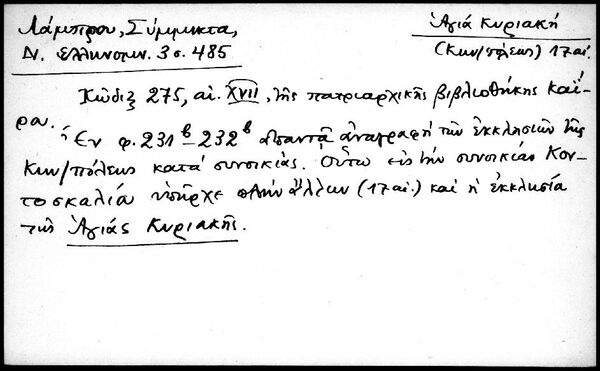 Λάμπρου, Σύμμικτα,
Ν. Ελληνομν. 3 σ. 485
Ἁγιά Κυριακή
(Κων/πόλεως) 17 αἰ.
Κῶδιξ 275, αἰ. XVII, τῆς πατριαρχικῆς βιβλιοθήκης Καΐ-
ρου. Ἐν φ. 231β-232β ἀπαντᾷ ἀναγραφή τῶν ἐκκλησιῶν τῆς
Κων/πόλεως κατά συνοικίας. Οὕτω εἰς τήν συνοικίαν Κον-
τοσκαλία ὑπῆρχε πλήν ἄλλων (17 αἰ.) καί ἡ ἐκκλησία
τῆς Ἁγιάς Κυριακῆς.